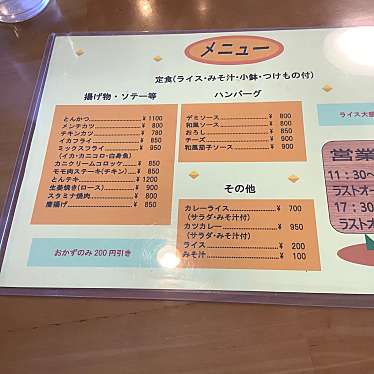 メニュー
定食(ライス・みそ汁・小鉢・つけもの付)
揚げ物・ソテー等
とんかつ ¥1100
メンチカツ ¥ 800
チキンカツ ¥ 780
イカフライ ¥ 850
ミックスフライ ¥ 950
(イカ・カニコロ・白身魚)
カニクリームコロッケ ¥ 850
モモ肉ステーキ(チキン) ¥ 850
とんテキ ¥1200
生姜焼き(ロース) ¥ 900
スタミナ焼肉 ¥ 800
唐揚げ ¥ 850
おかずのみ200円引き
ハンバーグ
デミソース ¥ 800
和風ソース ¥ 800
おろし ¥ 850
チーズ ¥ 900
和風茄子ソース ¥ 900
その他
カレーライス ¥ 700
(サラダ・みそ汁付)
カツカレー ¥ 950
(サラダ・みそ汁付)
ライス ¥ 200
みそ汁 ¥ 100
ライス大盛
営業
11:30~
ラストオー
17:30
ラストオ